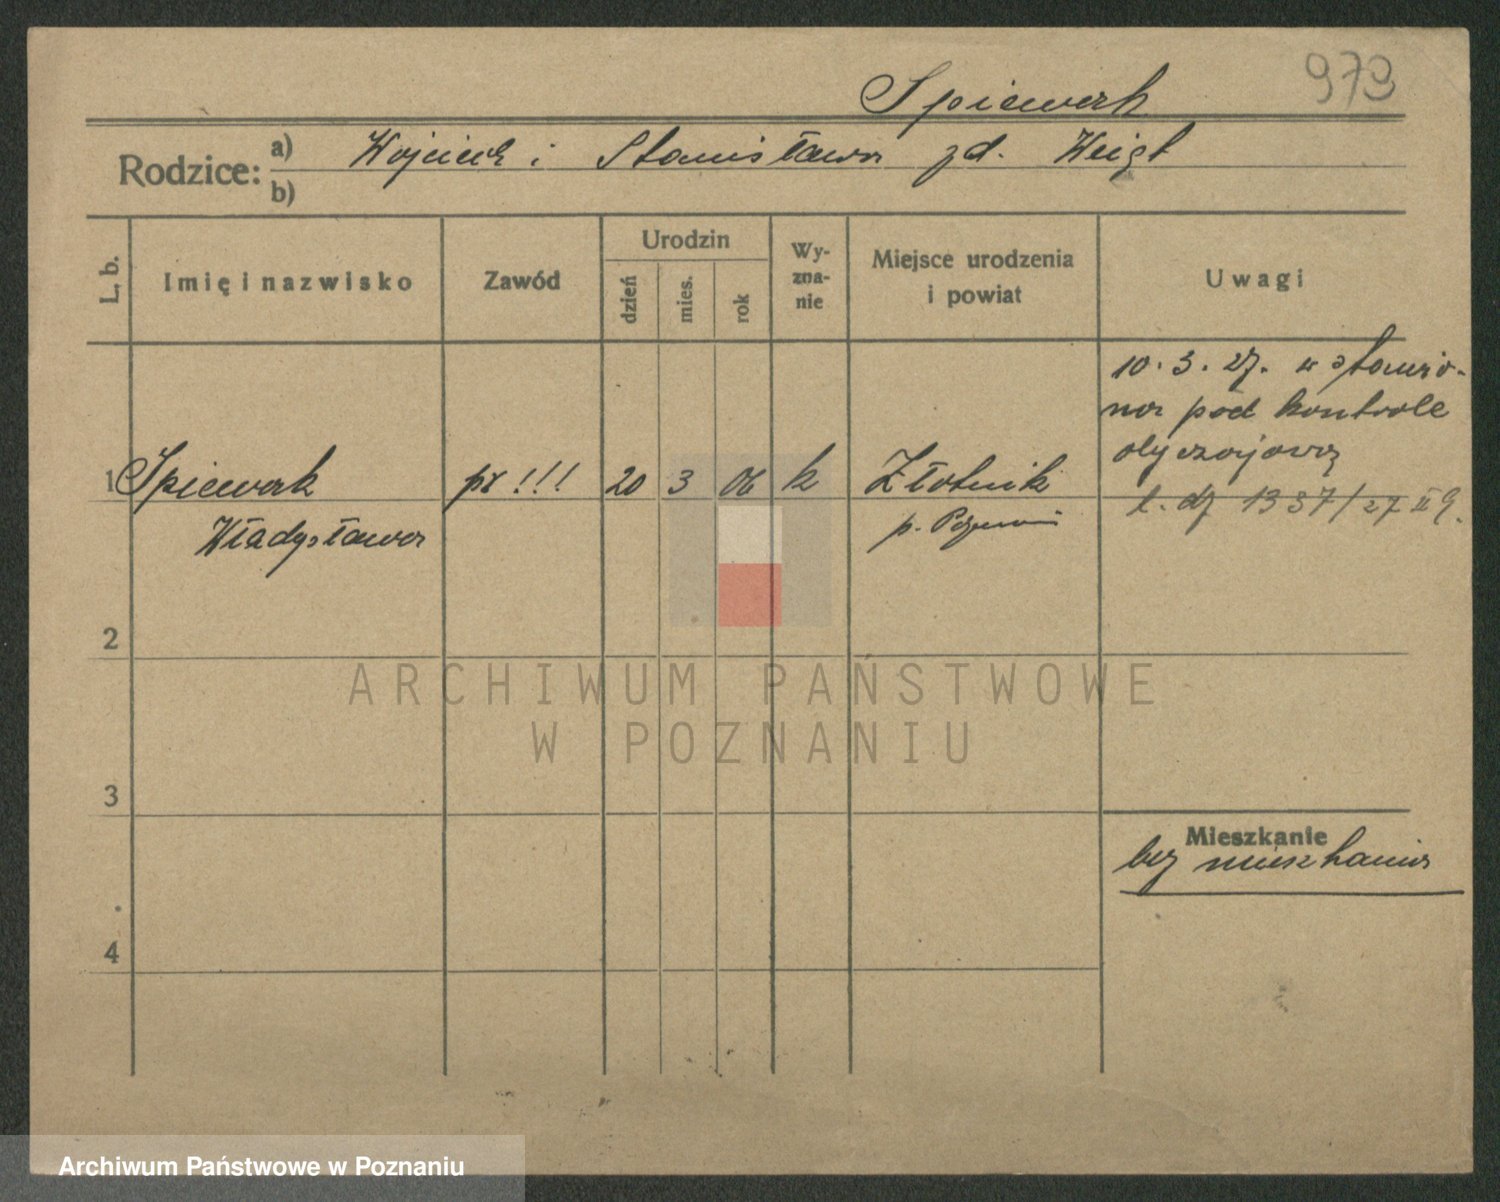 979
Spiewak
Rodzice: a) Wojciech i Stanisława zd. Weigt
b)
L. b.
Imię i nazwisko
Zawód
Urodzin
dzień
mies.
rok
Wy-
zna-
nie
Miejsce urodzenia
i powiat
Uwagi
10. 3. 27. w stawio-
na pod kontrole
obyczajową
l. dz 1337/27 II 9.
1 Spiewak pr !!! 20 3 06 k Złotnik
Władysława p. Poznań
2
3
4
Mieszkanie
bez mieszkania
ARCHIWUM PAŃSTWOWE
W POZNANIU
Archiwum Państwowe w Poznaniu